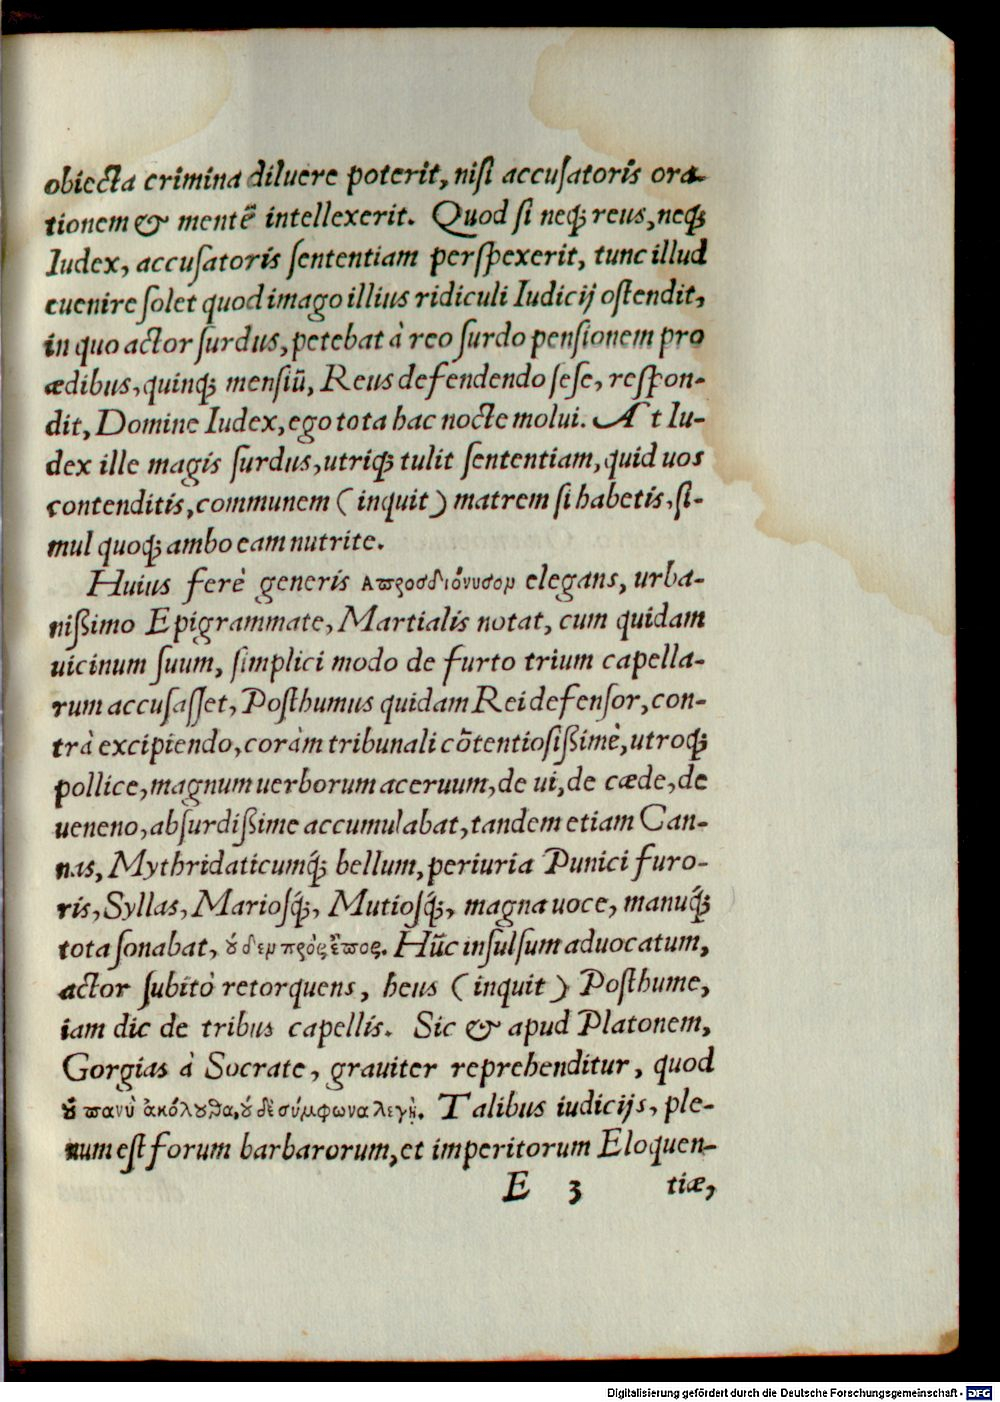 obiecta crimina diluere poterit, nisi accusatoris ora-
tionem & mentē intellexerit. Quod si neq; reus, neq;
Iudex, accusatoris sententiam perspexerit, tunc illud
euenire solet quod imago illius ridiculi Iudicij ostendit,
in quo actor surdus, petebat à reo surdo pensionem pro
ædibus, quinq; mensiū, Reus defendendo sese, respon-
dit, Domine Iudex, ego tota hac nocte molui. At Iu-
dex ille magis surdus, utriq; tulit sententiam, quid uos
contenditis, communem (inquit) matrem si habetis, si-
mul quoq; ambo eam nutrite.
Huius ferè generis Απροσδιόνυσομ elegans, urba-
nißimo Epigrammate, Martialis notat, cum quidam
uicinum suum, simplici modo de furto trium capella-
rum accusasset, Posthumus quidam Rei defensor, con-
trà excipiendo, coràm tribunali cōtentiosißimè, utroq;
pollice, magnum uerborum aceruum, de ui, de cæde, de
ueneno, absurdißime accumulabat, tandem etiam Can-
nas, Mythridaticumq́; bellum, periuria Punici furo-
ris, Syllas, Mariosq́;, Mutiosq́;, magna uoce, manuq́;
tota sonabat, ȣ δεμ πρὸς ἔπος. Hūc insulsum aduocatum,
actor subitò retorquens, heus (inquit) Posthume,
iam dic de tribus capellis. Sic & apud Platonem,
Gorgias à Socrate, grauiter reprehenditur, quod
ȣ̓ πανὺ ἀκόλȣθα, ȣ δὲ σύμφωνα λεγῃ. Talibus iudicijs, ple-
num est forum barbarorum, et imperitorum Eloquen-
E 3 tiæ,
Digitalisierung gefördert durch die Deutsche Forschungsgemeinschaft - DFG